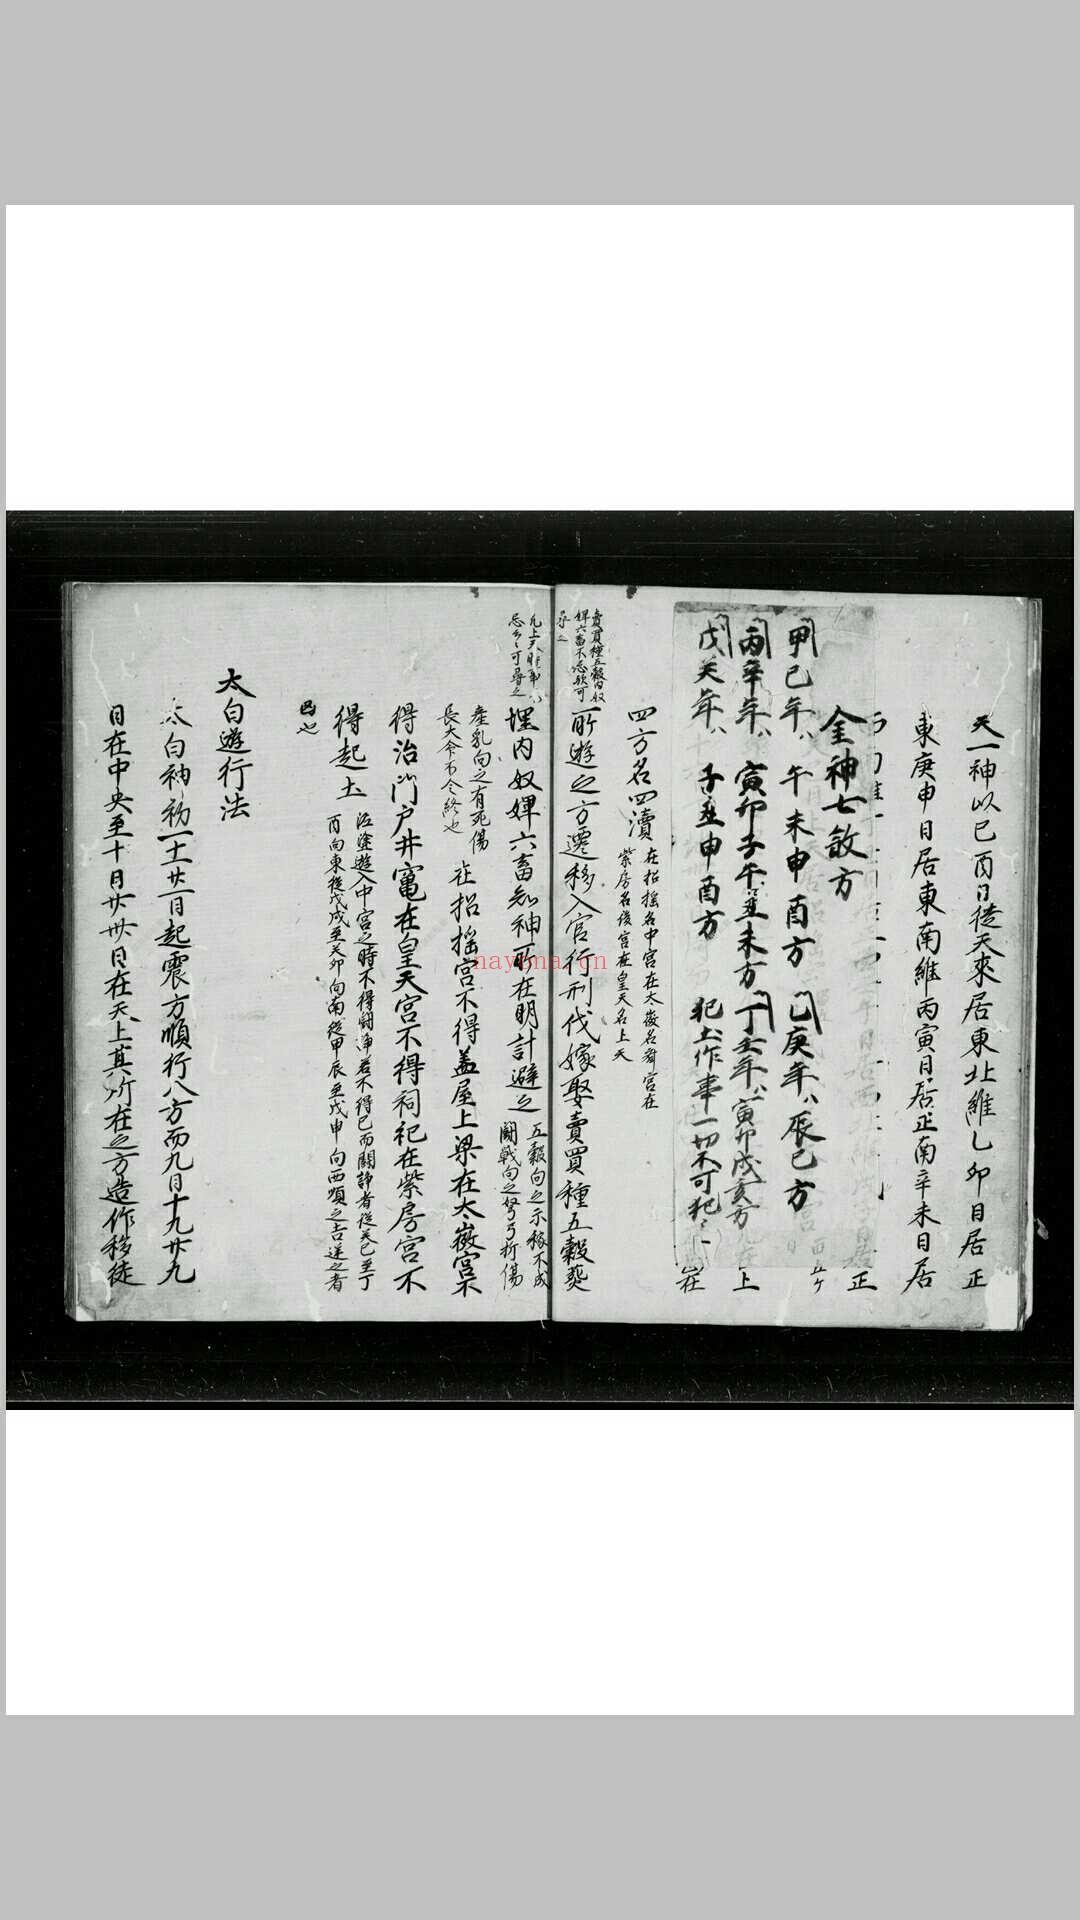 天一神以己酉日從天來居東北維乙卯日居正
東庚申日居東南維丙寅日居正南辛未日居
正
金神七煞方
甲己年 午未申酉方 乙庚年 辰巳方
丙辛年 寅卯子午丑未方 丁壬年 寅卯戌亥方
上
戊癸年 子丑申酉方 犯土作事一切不可犯
在
四方名四瀆 在招搖名中宮在太微名
紫房名後宮在皇天名上天
賣買種五穀内奴
婢六畜不忌歟可
尋之
所遊之方遷移入官行刑伐嫁娶賣買種五穀葬
凡上天
忌 可尋之
埋内奴婢六畜知神所在明計避之 五穀向之示稼不成
鬪戰向之弩弓折傷
産乳向之有死傷
長大命不令終也
在招搖宮不得蓋屋上梁在太微宮不
得治門戸井竃在皇天宮不得祠祀在紫房宮不
得起土 遊入中宮之時不得鬪諍若不得已而鬪諍者從癸巳至丁
酉向東從戊戌至癸卯向南從甲辰至戊申向西順之吉逆之者
凶也
太白遊行法
太白神初一十一廿一日起震方順行八方而九日十九廿九
日在中央至十日廿卅日在天上其所在之方造作移徙
nayona.cn